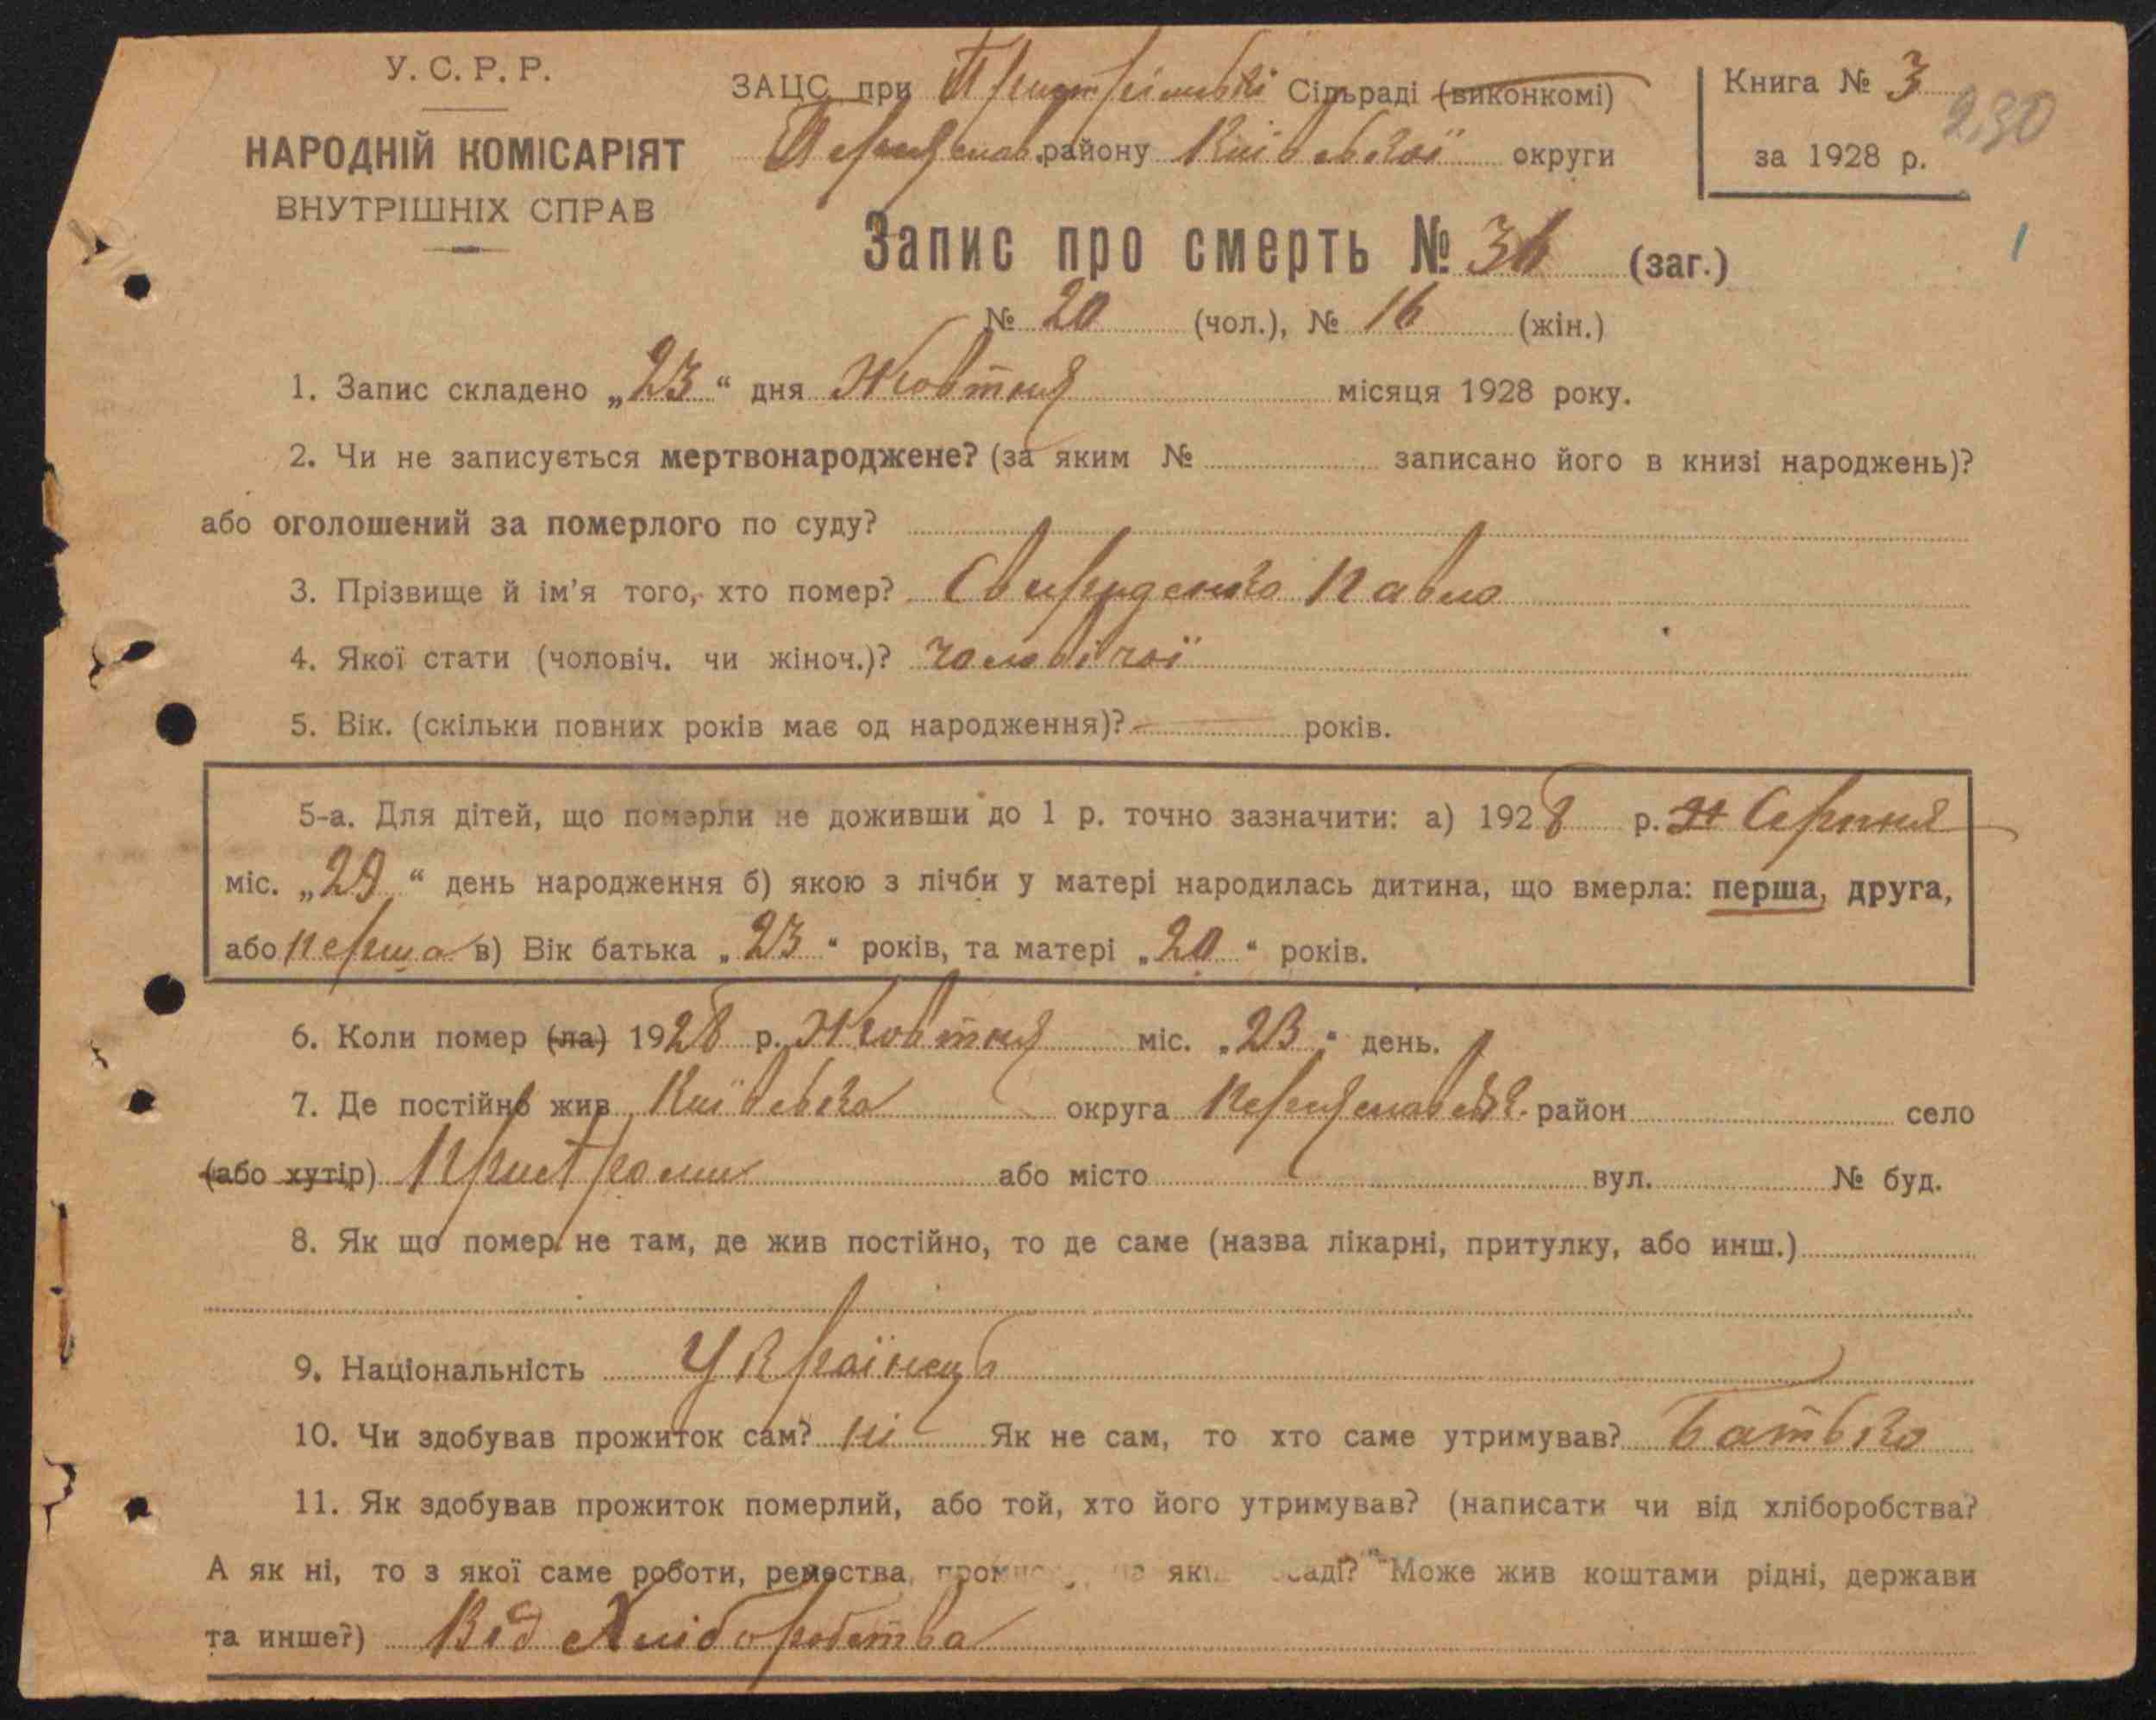 У. С. Р. Р.
НАРОДНІЙ КОМІСАРІЯТ
ВНУТРІШНІХ СПРАВ
ЗАЦС при Пристрімські Сільраді (виконкомі)
Переяслав. району Київської округи
Книга № 3
230
за 1928 р.
Запис про смерть № 36 (заг.)
№ 20 (чол.), № 16 (жін.)
1. Запис складено „23“ дня Жовтня місяця 1928 року.
2. Чи не записується мертвонароджене? (за яким № записано його в книзі народжень)?
або оголошений за померлого по суду?
3. Прізвище й ім'я того, хто помер? Свириденко Павло
4. Якої стати (чоловіч. чи жіноч.)? чоловічої
5. Вік. (скільки повних років має од народження)? — років.
5-а. Для дітей, що померли не доживши до 1 р. точно зазначити: а) 1928 р. Серпня
міс. „29“ день народження б) якою з лічби у матері народилась дитина, що вмерла: перша, друга,
або перша в) Вік батька „23“ років, та матері „20“ років.
6. Коли помер (ла) 1928 р. Жовтня міс. „23“ день.
7. Де постійно жив Київська округа Переяславськ. район село
(або хутір) Пристроми або місто вул. № буд.
8. Як що помер не там, де жив постійно, то де саме (назва лікарні, притулку, або инш.)
9. Національність Українець
10. Чи здобував прожиток сам? ні Як не сам, то хто саме утримував? Батько
11. Як здобував прожиток померлий, або той, хто його утримував? (написати чи від хліборобства?
А як ні, то з якої саме роботи, ремества, Може жив коштами рідні, держави
та инше?) Від Хліборобства